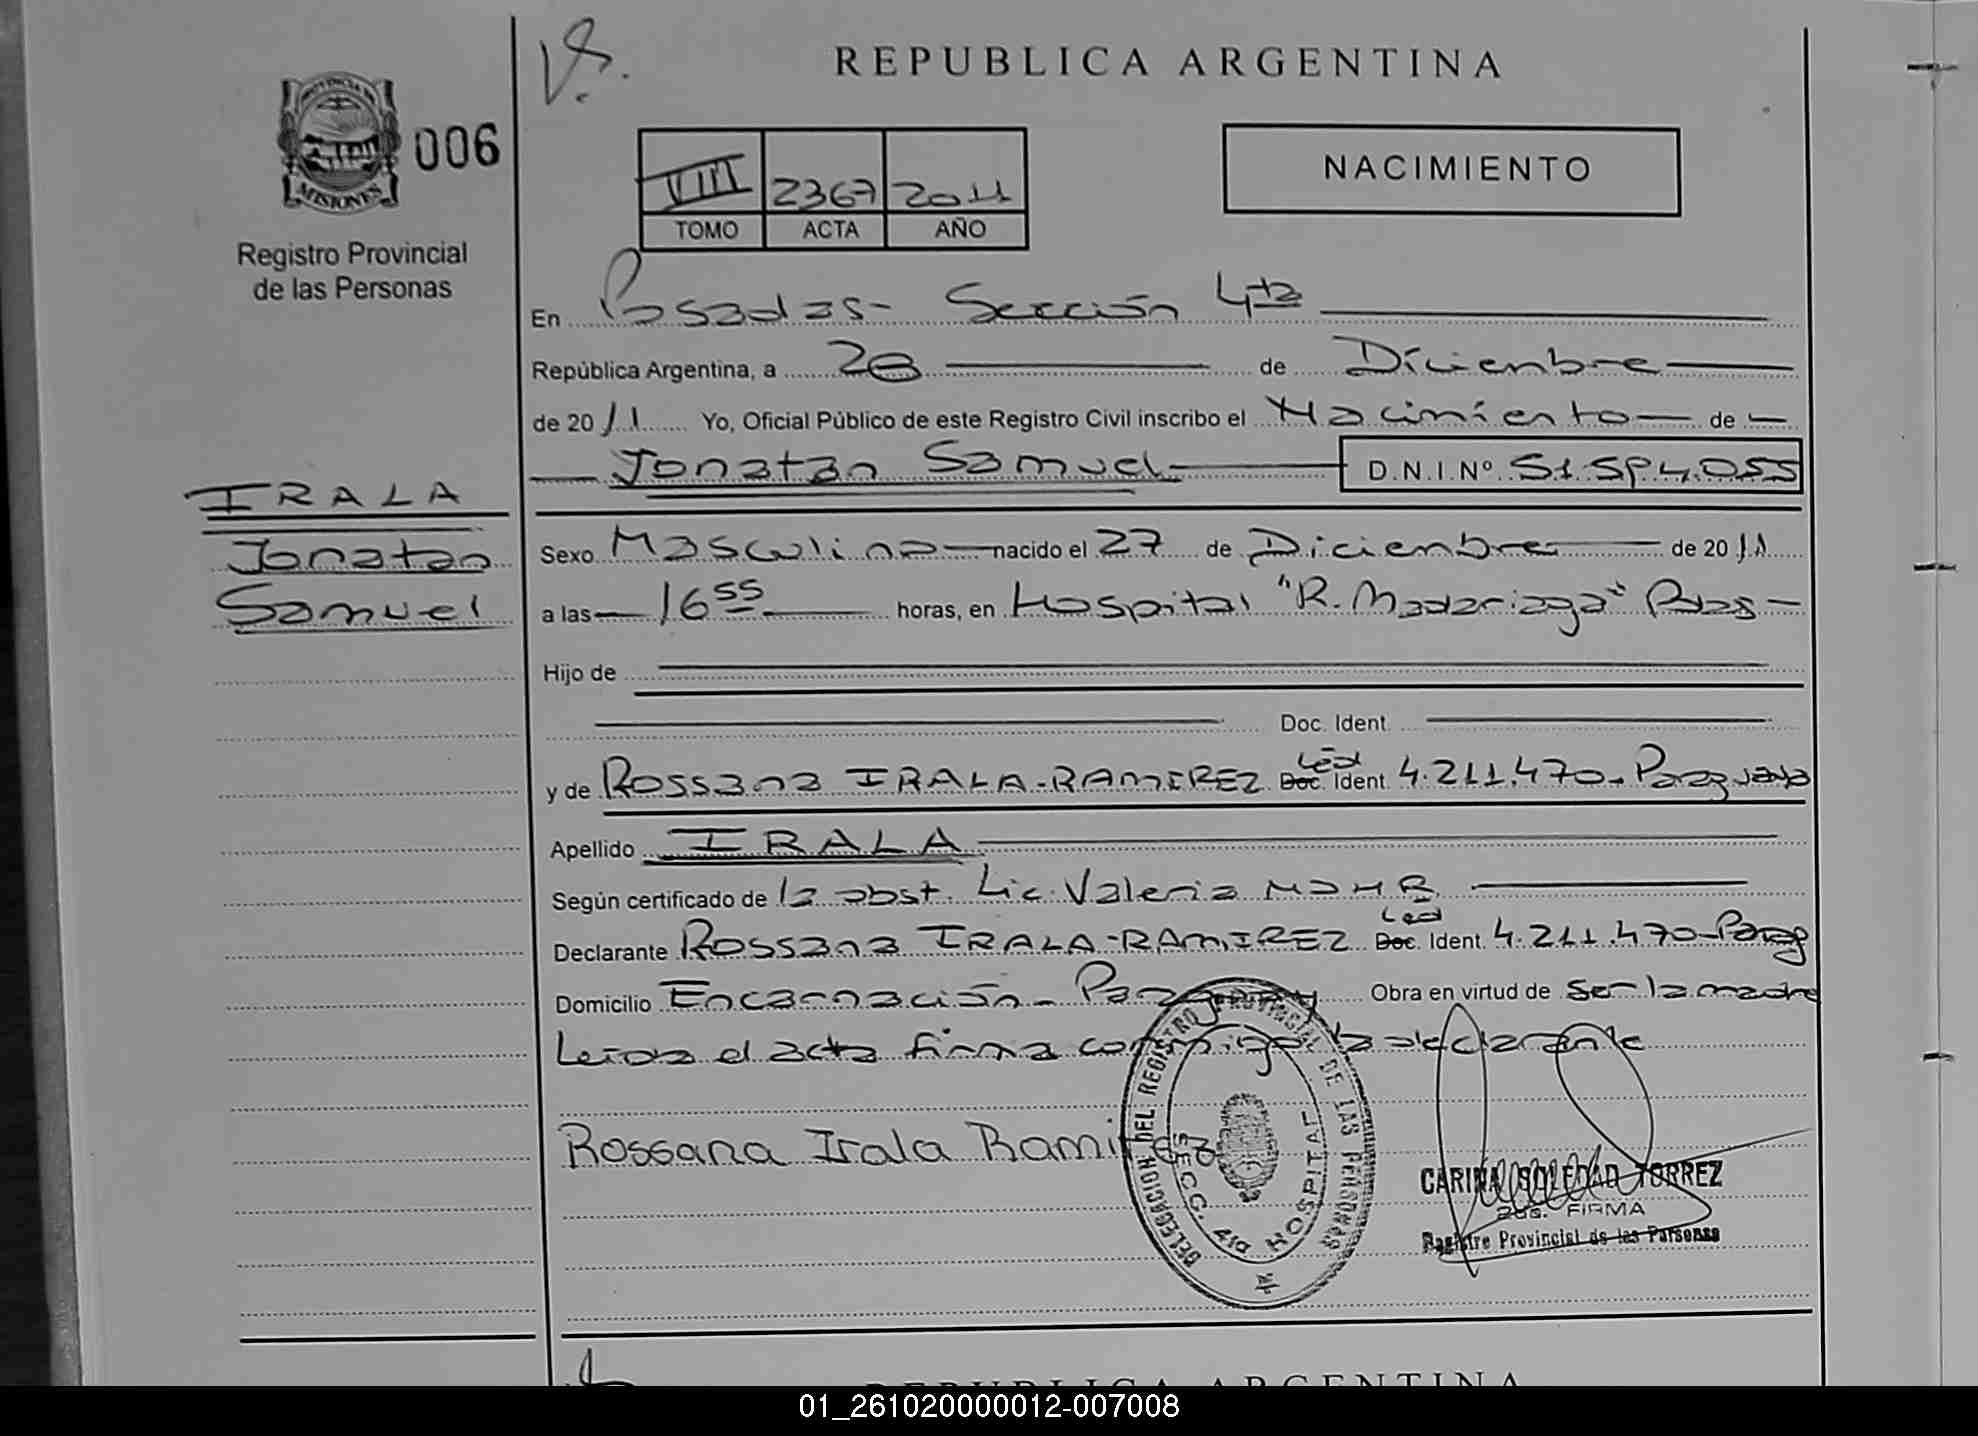 REPUBLICA ARGENTINA
006
MISIONES
Registro Provincial
de las Personas
VIII 2367 2011
TOMO ACTA AÑO
NACIMIENTO
En Posadas- Sección 4ta
República Argentina, a 28 de Diciembre
de 2011 Yo, Oficial Público de este Registro Civil inscribo el Nacimiento de
Jonatan Samuel D.N.I.Nº
IRALA
Jonatan
Samuel
Sexo Masculino nacido el 27 de Diciembre de 2011
a las 16 55 horas, en Hospital "R. Madariaga" Pdas
Hijo de
Doc. Ident.
y de Rossana IRALA-RAMIREZ Doc. Ident. 4.211.470- Paraguaya
Apellido IRALA
Según certificado de la obst. Lic. Valeria MOHR
Declarante Rossana IRALA-RAMIREZ Doc. Ident. 4.211.470-Parag
Domicilio Encarnación- Paraguay Obra en virtud de ser la madre
Leída el acta firma conmigo la declarante
Rossana Irala Ramirez
DELEGACION DEL REGISTRO PROVINCIAL DE LAS PERSONAS
SECC. 4ta HOSPITAL
CARINA SOLEDAD TORREZ
2da. FIRMA
Registro Provincial de las Personas
REPUBLICA ARGENTINA
01_261020000012-007008